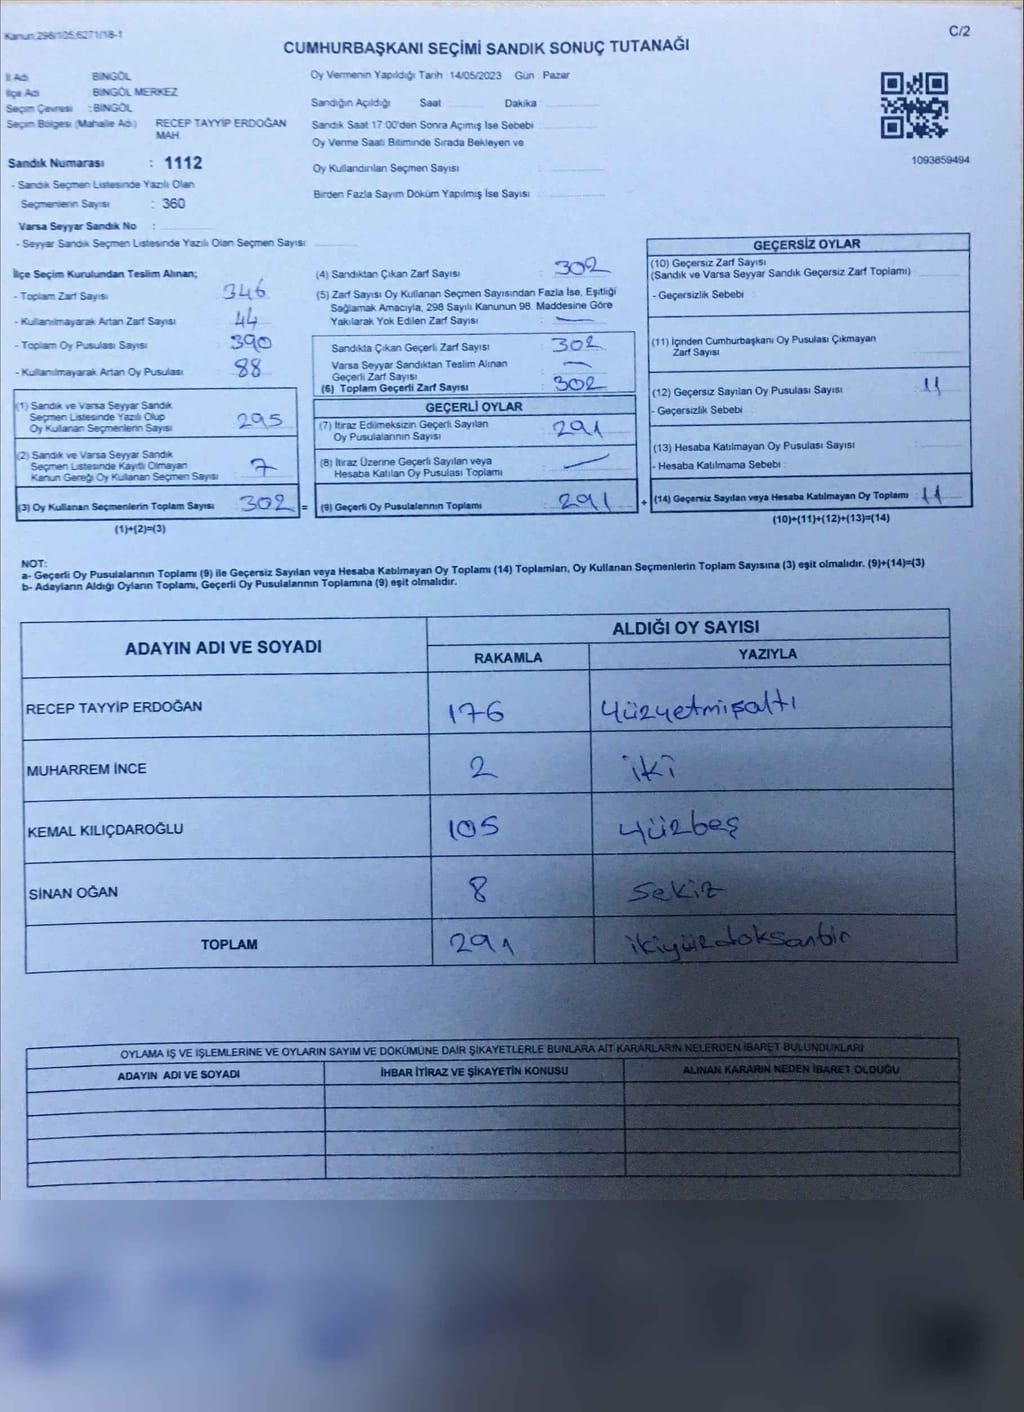 Kanun:298/105,6271/18-1
C/2
CUMHURBAŞKANI SEÇİMİ SANDIK SONUÇ TUTANAĞI
İl Adı BİNGÖL
İlçe Adı BİNGÖL MERKEZ
Seçim Çevresi :BİNGÖL
Seçim Bölgesi (Mahalle Adı) RECEP TAYYİP ERDOĞAN
MAH.
Sandık Numarası : 1112
- Sandık Seçmen Listesinde Yazılı Olan
Seçmenlerin Sayısı : 360
Varsa Seyyar Sandık No :
- Seyyar Sandık Seçmen Listesinde Yazılı Olan Seçmen Sayısı:
Oy Vermenin Yapıldığı Tarih 14/05/2023 Gün Pazar
Sandığın Açıldığı Saat Dakika
Sandık Saat 17:00'den Sonra Açılmış İse Sebebi
Oy Verme Saati Bitiminde Sırada Bekleyen ve
Oy Kullandırılan Seçmen Sayısı :
Birden Fazla Sayım Döküm Yapılmış İse Sayısı :
1093859494
İlçe Seçim Kurulundan Teslim Alınan;
- Toplam Zarf Sayısı 346
- Kullanılmayarak Artan Zarf Sayısı 44
- Toplam Oy Pusulası Sayısı 390
- Kullanılmayarak Artan Oy Pusulası 88
(1) Sandık ve Varsa Seyyar Sandık
Seçmen Listesinde Yazılı Olup
Oy Kullanan Seçmenlerin Sayısı 295
(2) Sandık ve Varsa Seyyar Sandık
Seçmen Listesinde Kayıtlı Olmayan
Kanun Gereği Oy Kullanan Seçmen Sayısı 7
(3) Oy Kullanan Seçmenlerin Toplam Sayısı 302 =
(1)+(2)=(3)
(4) Sandıktan Çıkan Zarf Sayısı : 302
(5) Zarf Sayısı Oy Kullanan Seçmen Sayısından Fazla İse, Eşitliği
Sağlamak Amacıyla, 298 Sayılı Kanunun 98. Maddesine Göre
Yakılarak Yok Edilen Zarf Sayısı : —
Sandıkta Çıkan Geçerli Zarf Sayısı : 302
Varsa Seyyar Sandıktan Teslim Alınan
Geçerli Zarf Sayısı : —
(6) Toplam Geçerli Zarf Sayısı : 302
GEÇERLİ OYLAR
(7) İtiraz Edilmeksizin Geçerli Sayılan
Oy Pusulalarının Sayısı : 291
(8) İtiraz Üzerine Geçerli Sayılan veya
Hesaba Katılan Oy Pusulası Toplamı : —
(9) Geçerli Oy Pusulalarının Toplamı : 291 +
GEÇERSİZ OYLAR
(10) Geçersiz Zarf Sayısı
(Sandık ve Varsa Seyyar Sandık Geçersiz Zarf Toplamı) :
- Geçersizlik Sebebi :
(11) İçinden Cumhurbaşkanı Oy Pusulası Çıkmayan
Zarf Sayısı :
(12) Geçersiz Sayılan Oy Pusulası Sayısı : 11
- Geçersizlik Sebebi :
(13) Hesaba Katılmayan Oy Pusulası Sayısı :
- Hesaba Katılmama Sebebi :
(14) Geçersiz Sayılan veya Hesaba Katılmayan Oy Toplamı : 11
(10)+(11)+(12)+(13)=(14)
NOT:
a- Geçerli Oy Pusulalarının Toplamı (9) ile Geçersiz Sayılan veya Hesaba Katılmayan Oy Toplamı (14) Toplamları, Oy Kullanan Seçmenlerin Toplam Sayısına (3) eşit olmalıdır. (9)+(14)=(3)
b- Adayların Aldığı Oyların Toplamı, Geçerli Oy Pusulalarının Toplamına (9) eşit olmalıdır.
ADAYIN ADI VE SOYADI
ALDIĞI OY SAYISI
RAKAMLA YAZIYLA
RECEP TAYYİP ERDOĞAN 176 yüzyetmişaltı
MUHARREM İNCE 2 iki
KEMAL KILIÇDAROĞLU 105 yüzbeş
SİNAN OĞAN 8 sekiz
TOPLAM 291 ikiyüzdoksanbir
OYLAMA İŞ VE İŞLEMLERİNE VE OYLARIN SAYIM VE DÖKÜMÜNE DAİR ŞİKAYETLERLE BUNLARA AİT KARARLARIN NELERDEN İBARET BULUNDUKLARI
ADAYIN ADI VE SOYADI İHBAR İTİRAZ VE ŞİKAYETİN KONUSU ALINAN KARARIN NEDEN İBARET OLDUĞU